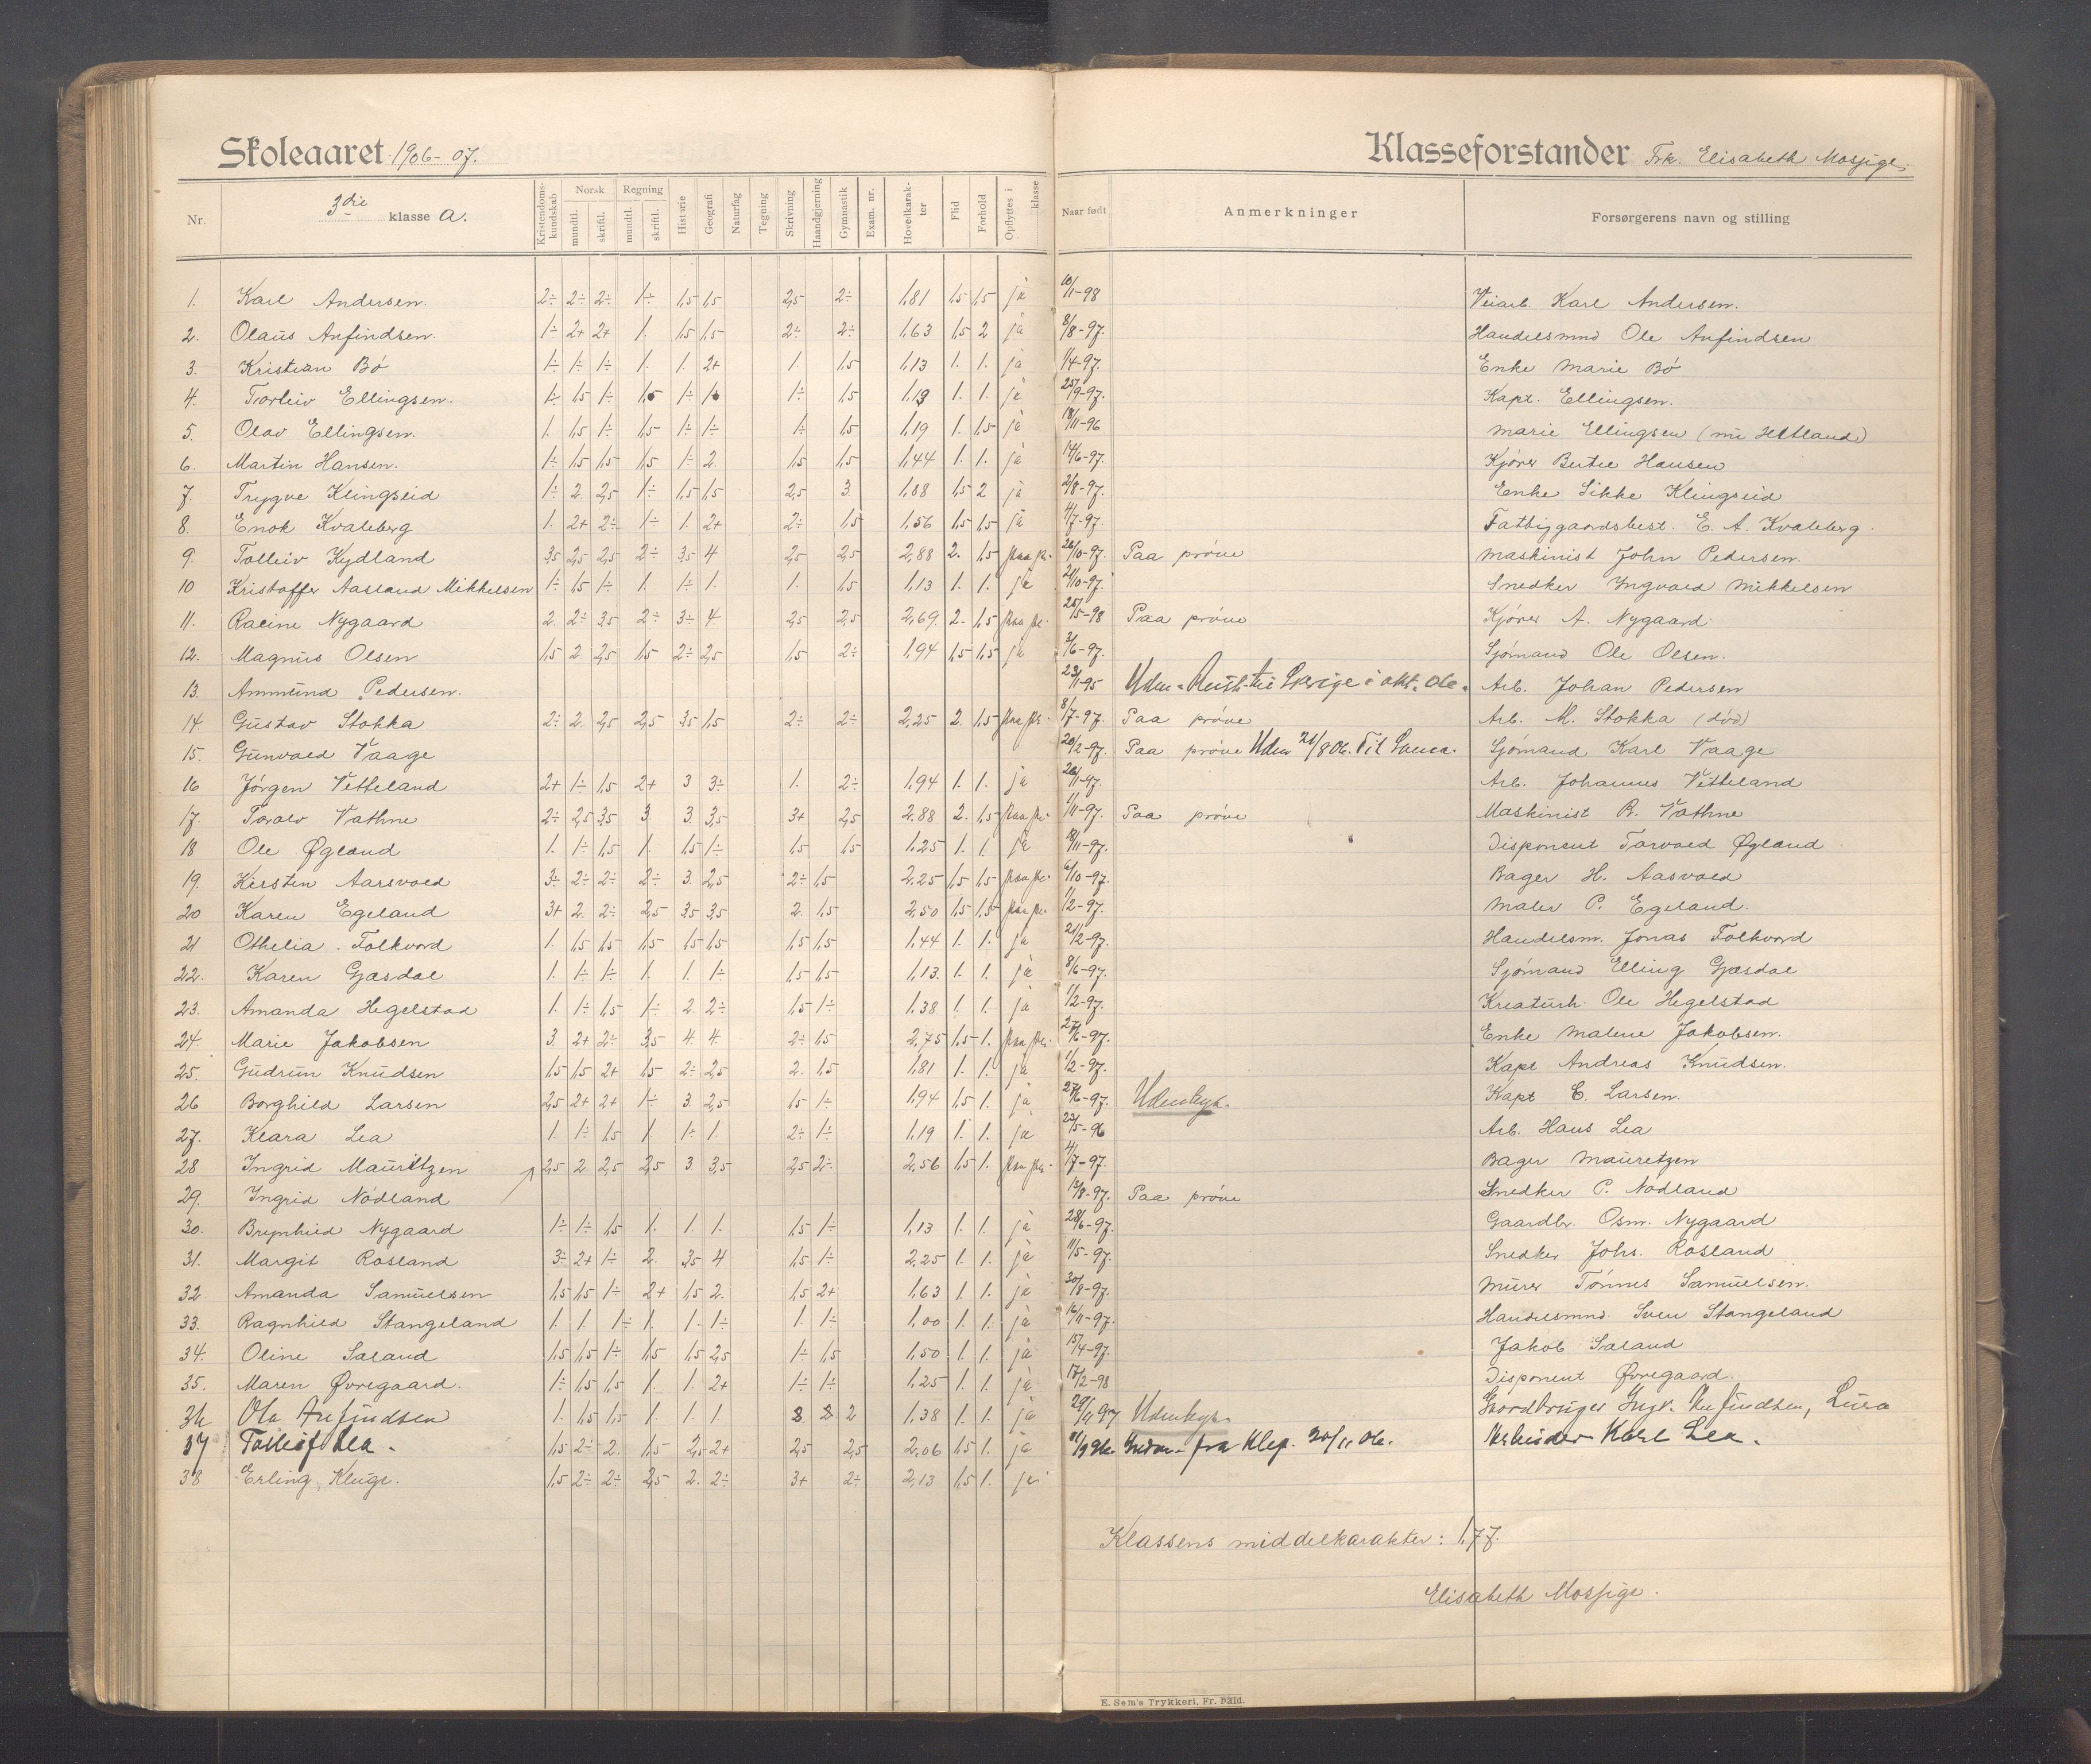 Skoleaaret 1906-07. Klasseforstander Frk. Elisabeth Mossige.
Nr. 3die klasse a. Kristendomskundskab Norsk mundtl. skriftl. Regning mundtl. skriftl. Historie Geografi Naturfag Tegning Skrivning Haandgjerning Gymnastik Exam. nr. Hovedkarakter Flid Forhold Opflyttes i klasse Naar født Anmerkninger Forsørgerens navn og stilling
1. Karl Andersen. 2÷ 2÷ 2÷ 1÷ 1,5 1,5 2,5 2÷ 1,81 1,5 1,5 ja 10/11-98 Veiarb. Karl Andersen.
2. Olaus Anfindsen. 1÷ 2+ 2+ 1. 1,5 1,5 2÷ 2÷ 1,63 1,5 2 ja 8/8-97. Handelsmnd Ole Anfindsen
3. Kristian Bø 1÷ 1÷ 1÷ 1. 1. 2+ 1. 1,5 1,13 1. 1. ja 1/4-97. Enke Marie Bø
4. Torleiv Ellingsen. 1÷ 1,5 1÷ 1,5 1÷ 1÷ 1,5 1,19 1. 1. ja 25/9-97. Kapt. Ellingsen.
5. Olav Ellingsen. 1. 1,5 1÷ 1,5 1÷ 1÷ 1÷ 1,5 1,19 1. 1,5 ja 18/11-96 Marie Ellingsen (nu Hetland)
6. Martin Hansen. 1÷ 1,5 1,5 1,5 1÷ 2. 1,5 1,5 1,44 1. 1. ja 14/6-97. Kjører Bertee Hansen
7. Trygve Klingseid 1÷ 2. 2,5 1÷ 1,5 1,5 2,5 3. 1,88 1,5 2 ja 2/8-97. Enke Sikke Klingseid
8. Enok Kvaleberg 1. 2+ 2÷ 1÷ 1. 2+ 2÷ 1,5 1,56 1,5 1,5 ja 4/7-97. Fattiggaardsbest. E. A. Kvaleberg.
9. Tolleiv Kydland 3,5 2,5 2,5 2÷ 3,5 4 2,5 2,5 2,88 2. 1,5 paa pr. 26/10-97. Paa prøve Maskinist John Pedersen.
10 Kristoffer Aasland Mikkelsen 1÷ 1,5 1÷ 1. 1÷ 1. 1. 1,5 1,13 1. 1. ja 21/10-97. Snedker Ingvald Mikkelsen
11. Racine Nygaard 2. 2÷ 3,5 2÷ 3÷ 4. 2,5 2,5 2,69. 2. 1,5 paa pr. 25/5-98 Paa prøve Kjører A. Nygaard
12. Magnus Olsen 1,5 2. 2,5 1,5 2÷ 2,5 1,5 2÷ 1,94 1,5 1,5 ja 3/6-97. Sjømand Ole Olsen.
13. Ammund Pedersen. 23/11-95 i okt. 06. Arb. Johan Pedersen
14. Gustav Stokka 2÷ 2. 2,5 2,5 3,5 1,5 2÷ 2÷ 2,25 2. 1,5 paa pr. 8/7-97. Paa prøve Arb. M. Stokka (død)
15. Gunvald Vaage 20/2-97. Paa prøve Uden 21/8 06. Til Sømand Karl Vaage
16 Jörgen Vetteland 2+ 1÷ 1,5 2+ 3 3÷ 1. 2÷ 1,94 1. 1. ja 26/1-97. Arb. Johannes Vetteland
17. Toralv Vathne 2÷ 2,5 3,5 3 3. 3,5 3+ 2,5 2,88 2. 1,5 paa pr. 1/11-97. Paa prøve Maskinist R. Vathne
18 Ole Øgland 1. 1÷ 1,5 1. 1,5 1÷ 1,5 1,5 1,25 1. 1. ja 18/11-97. Disponent Torvald Øgland
19. Kirsten Aarsvold 3÷ 2÷ 2÷ 2÷ 3. 2,5 2÷ 1,5 2,25 1,5 1,5 paa pr. 6/10-97. Bager H. Aasvold
20 Karen Egeland 3+ 2. 2÷ 2,5 3,5 3,5 2. 1,5 2,50 1,5 1,5 paa pr. 1/2-97. Maler P. Egeland.
21 Othelia Folkvord 1. 1,5 1,5 1,5 1,5 1,5 1,5 1,5 1,44 1. 1. ja 21/2-97. Handelsm. Jonas Folkvord
22. Karen Gjesdal 1. 1÷ 1÷ 1. 1. 1÷ 1,5 1,5 1,13. 1. 1. ja 8/6-97. Sjømand Elling Gjesdal
23. Amanda Hegelstad 1. 1÷ 1,5 1÷ 2. 2÷ 1,5 1÷ 1,38 1. 1. ja 1/2-97. Kreaturh. Ole Hegelstad
24. Marie Jakobsen 3. 2+ 2÷ 3,5 4. 4. 2÷ 1,5 2,75 1,5 1. paa pr. 27/6-97. Enke Malene Jakobsen.
25. Gudrun Knudsen 1,5 1,5 2+ 1,5 2÷ 2,5 2. 1,5 1,81 1. 1. ja 1/2-97. Kapt Andreas Knudsen.
26 Borghild Larsen 2,5 2+ 2+ 1÷ 3. 2,5 1,5 1÷ 1,94 1,5 1. ja 27/6-97. Udenbys. Kapt E. Larsen.
27. Klara Lea 1. 1÷ 1,5 1. 1÷ 1. 2÷ 1÷ 1,19 1. 1. ja 23/5-96 Arb. Hans Lea
28 Ingrid Mauritzen 2,5 2. 2,5 2,5 3. 3,5 2,5 2÷ 2,56 1,5 1. paa pr. 4/7-97. Bager Mauretzen
29. Ingrid Nödland 13/8-97. Paa prøve Snedker P. Nödland
30. Brynhild Nygaard 1÷ 1÷ 1,5 1. 1. 1. 1,5 1÷ 1,13 1. 1. ja 28/6-97. Gaardbr. Osm. Nygaard
31. Margit Rosland 3÷ 2+ 1÷ 2. 3,5 4 1,5 1÷ 2,25 1. 1. ja 11/5-97. Snedker Johs. Rosland
32. Amanda Samuelsen 1,5 1,5 1÷ 2+ 1,5 2. 1,5 2+ 1,63 1. 1. ja 30/8-97. Murer Tønnes Samuelsen.
33. Ragnhild Stangeland 1. 1. 1÷ 1. 1. 1÷ 1. 1÷ 1,00 1. 1. ja 16/11-97. Handelsmnd. Sven Stangeland
34. Oline Saland 1,5 1,5 1÷ 1,5 1,5 2,5 1÷ 1,5 1,50 1. 1. ja 15/4-97. Jakob Saland
35. Maren Øvregaard. 1÷ 1,5 1,5 1. 1. 2+ 1÷ 1÷ 1,25 1. 1. ja 17/2-98 Disponent Øvregaard.
36 Ola Anfindsen 1. 1,5 1,5 1. 1. 1. 2. 2 2 1,38 1. 1. ja Udenbys. Gordbruger Ingv. Anfindsen, Lura
37 Tolleif Lea. 1,5 2÷ 2. 1,5 2,5 2+ 2,5 2,5 2,06 1,5 1. ja fra Klep. 20/11 06. Arbeider Karl Lea.
38 Erling Kluge. 1,5 2÷ 2÷ 2,5 2. 2÷ 3+ 2÷ 2,13 1,5 1. ja
Klassens middelkarakter: 1,77.
Elisabeth Mossige.
E. Sem's Trykkeri, Fr. hald.